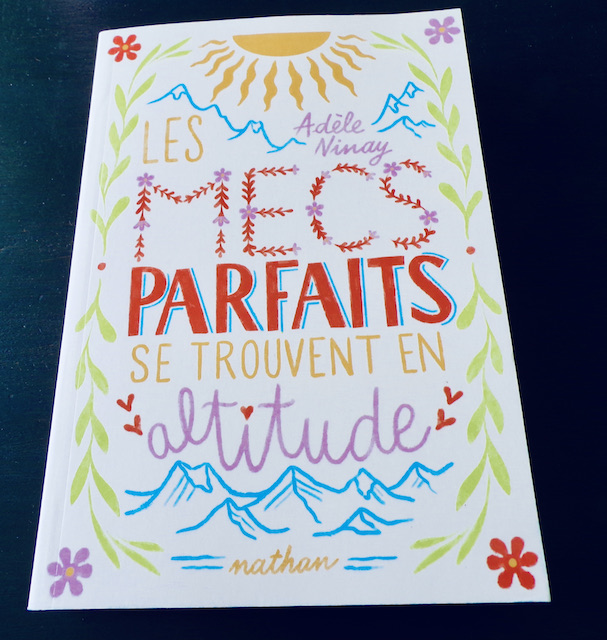 LES
Adèle
Ninay
MECS
PARFAITS
SE TROUVENT EN
altitude
nathan